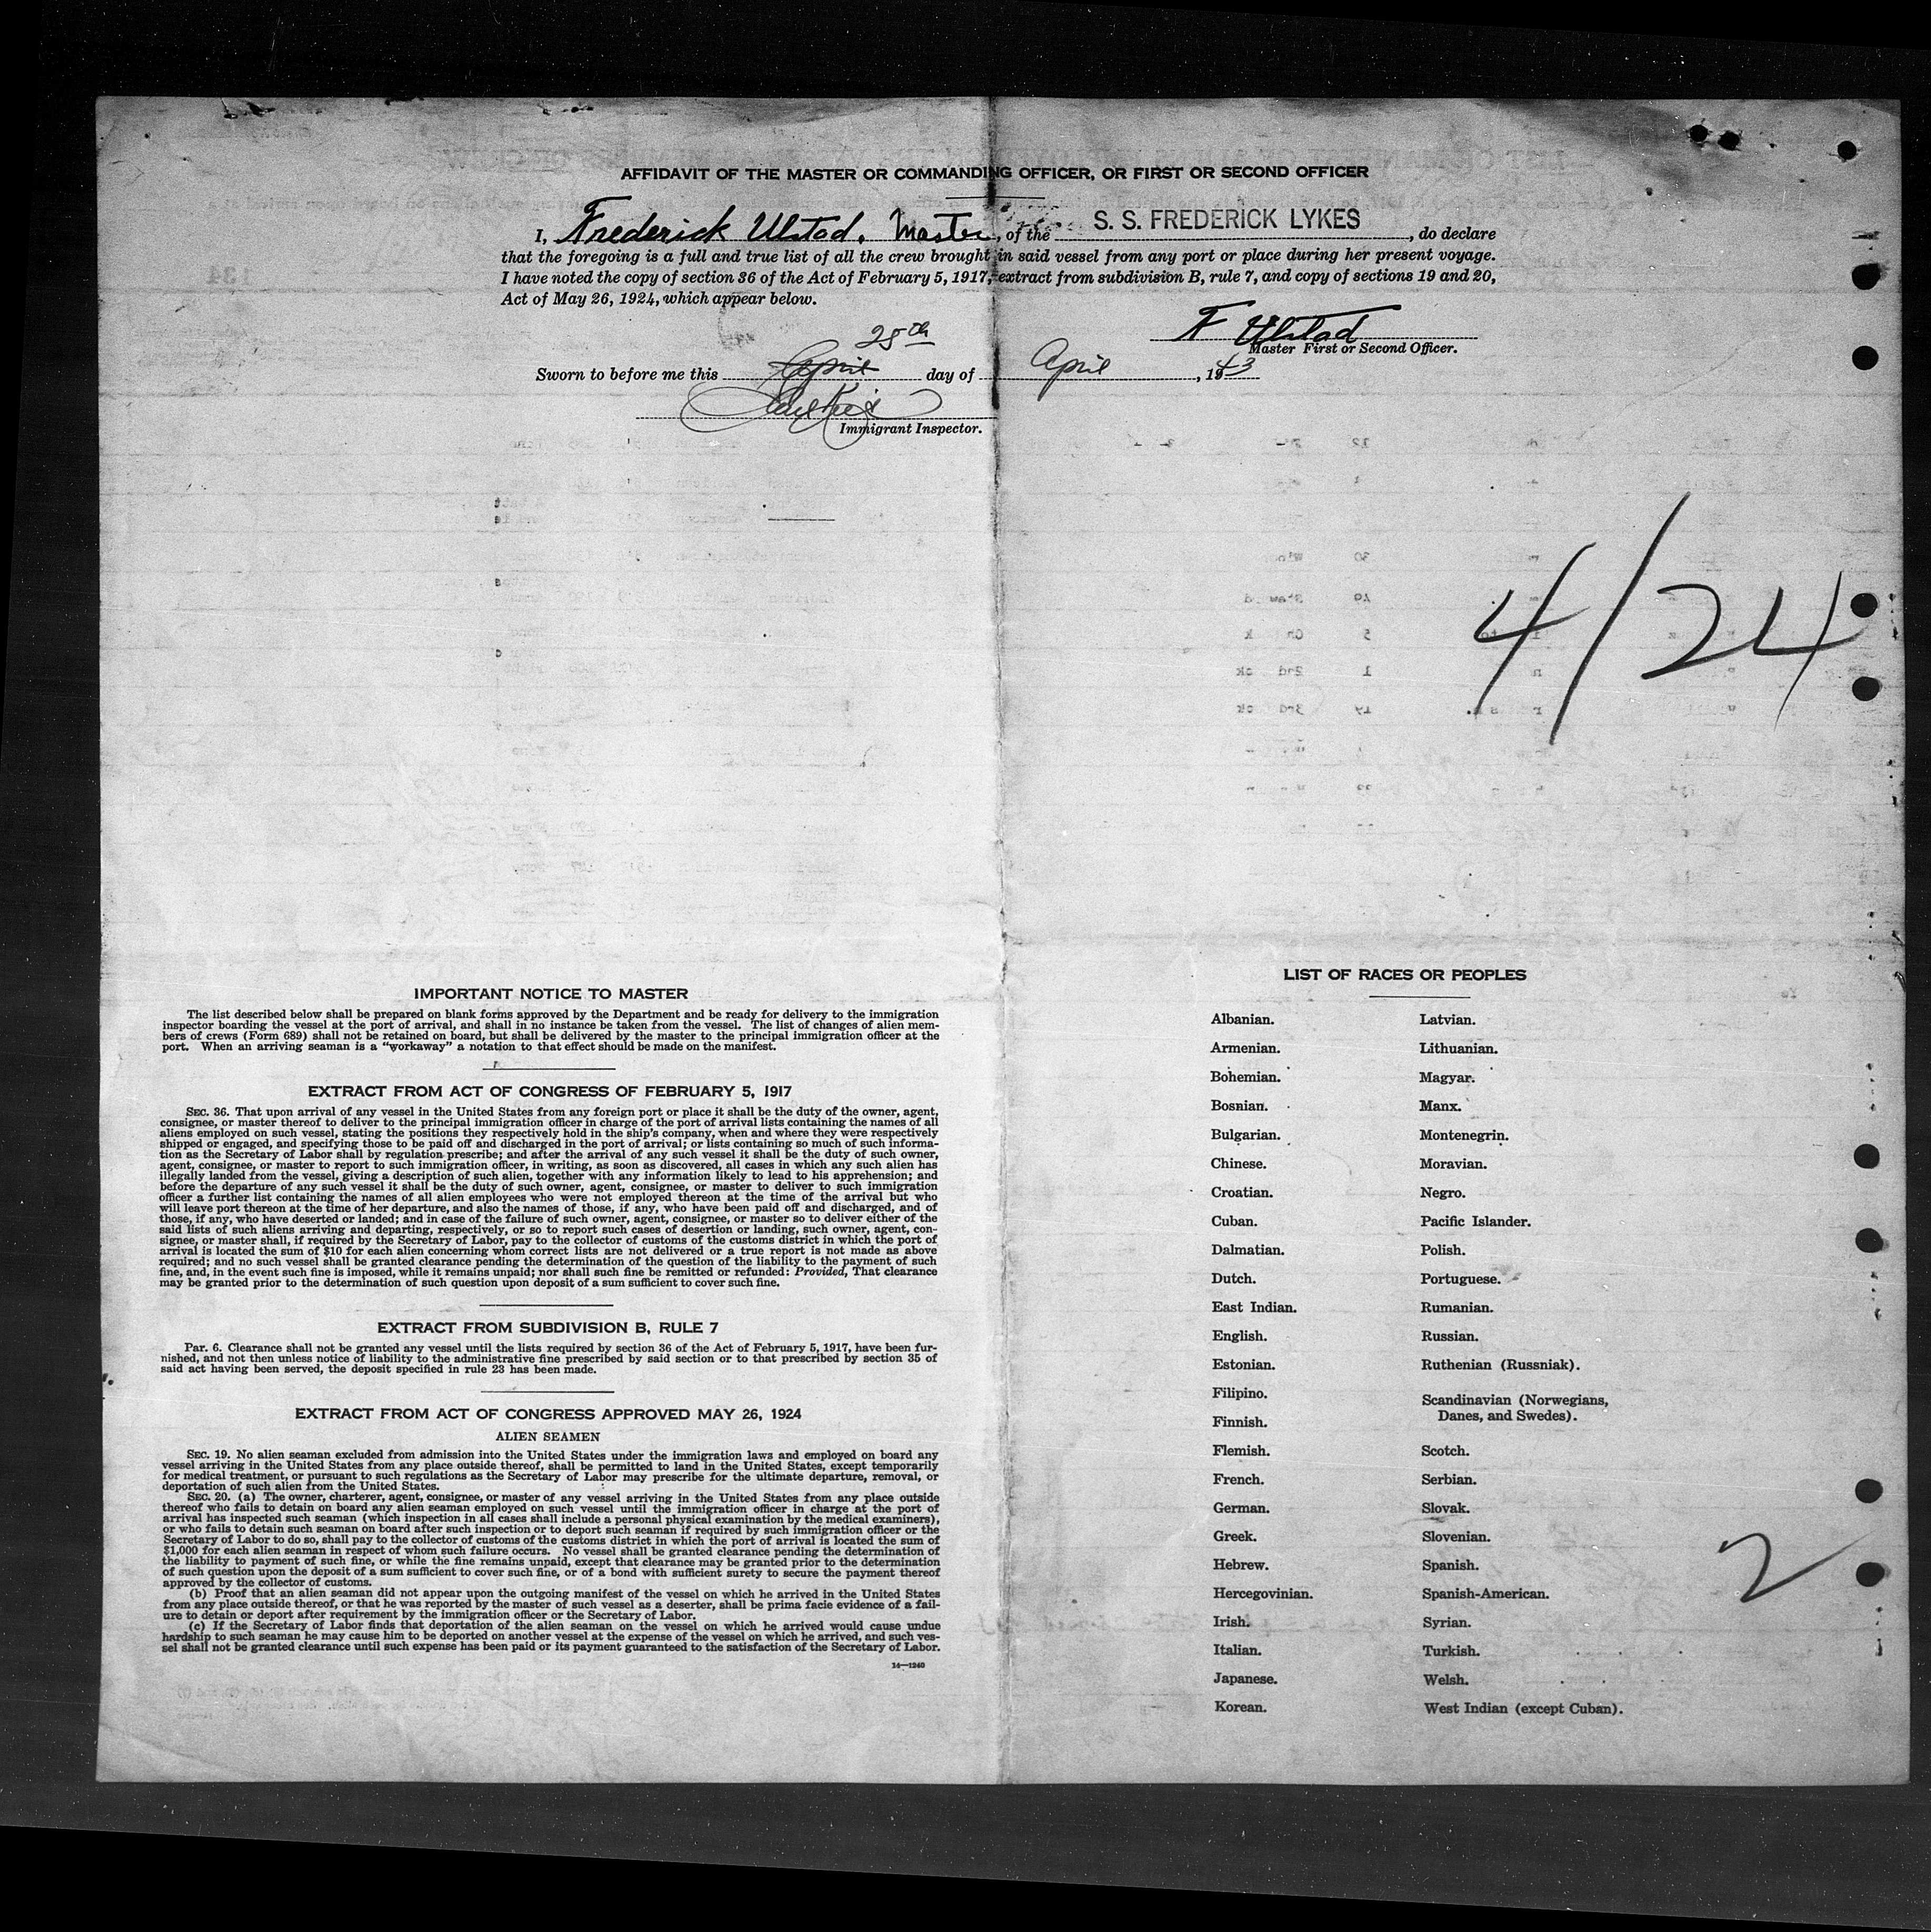 AFFIDAVIT OF THE MASTER OR COMMANDING OFFICER, OR FIRST OR SECOND OFFICER
I, Frederick Ulstad, Master, of the S. S. FREDERICK LYKES, do declare
that the foregoing is a full and true list of all the crew brought in said vessel from any port or place during her present voyage.
I have noted the copy of section 36 of the Act of February 5, 1917, extract from subdivision B, rule 7, and copy of sections 19 and 20,
Act of May 26, 1924, which appear below.
F Ulstad
Master First or Second Officer.
25th
Sworn to before me this April day of April, 1943
Immigrant Inspector.
4/24
IMPORTANT NOTICE TO MASTER
The list described below shall be prepared on blank forms approved by the Department and be ready for delivery to the immigration
inspector boarding the vessel at the port of arrival, and shall in no instance be taken from the vessel. The list of changes of alien mem-
bers of crews (Form 689) shall not be retained on board, but shall be delivered by the master to the principal immigration officer at the
port. When an arriving seaman is a "workaway" a notation to that effect should be made on the manifest.
EXTRACT FROM ACT OF CONGRESS OF FEBRUARY 5, 1917
SEC. 36. That upon arrival of any vessel in the United States from any foreign port or place it shall be the duty of the owner, agent,
consignee, or master thereof to deliver to the principal immigration officer in charge of the port of arrival lists containing the names of all
aliens employed on such vessel, stating the positions they respectively hold in the ship's company, when and where they were respectively
shipped or engaged, and specifying those to be paid off and discharged in the port of arrival; or lists containing so much of such informa-
tion as the Secretary of Labor shall by regulation prescribe; and after the arrival of any such vessel it shall be the duty of such owner,
agent, consignee, or master to report to such immigration officer, in writing, as soon as discovered, all cases in which any such alien has
illegally landed from the vessel, giving a description of such alien, together with any information likely to lead to his apprehension; and
before the departure of any such vessel it shall be the duty of such owner, agent, consignee, or master to deliver to such immigration
officer a further list containing the names of all alien employees who were not employed thereon at the time of the arrival but who
will leave port thereon at the time of her departure, and also the names of those, if any, who have been paid off and discharged, and of
those, if any, who have deserted or landed; and in case of the failure of such owner, agent, consignee, or master so to deliver either of the
said lists of such aliens arriving and departing, respectively, or so to report such cases of desertion or landing, such owner, agent, con-
signee, or master shall, if required by the Secretary of Labor, pay to the collector of customs of the customs district in which the port of
arrival is located the sum of $10 for each alien concerning whom correct lists are not delivered or a true report is not made as above
required; and no such vessel shall be granted clearance pending the determination of the question of the liability to the payment of such
fine, and, in the event such fine is imposed, while it remains unpaid; nor shall such fine be remitted or refunded: Provided, That clearance
may be granted prior to the determination of such question upon deposit of a sum sufficient to cover such fine.
EXTRACT FROM SUBDIVISION B, RULE 7
Par. 6. Clearance shall not be granted any vessel until the lists required by section 36 of the Act of February 5, 1917, have been fur-
nished, and not then unless notice of liability to the administrative fine prescribed by said section or to that prescribed by section 35 of
said act having been served, the deposit specified in rule 23 has been made.
EXTRACT FROM ACT OF CONGRESS APPROVED MAY 26, 1924
ALIEN SEAMEN
SEC. 19. No alien seaman excluded from admission into the United States under the immigration laws and employed on board any
vessel arriving in the United States from any place outside thereof, shall be permitted to land in the United States, except temporarily
for medical treatment, or pursuant to such regulations as the Secretary of Labor may prescribe for the ultimate departure, removal, or
deportation of such alien from the United States.
SEC. 20. (a) The owner, charterer, agent, consignee, or master of any vessel arriving in the United States from any place outside
thereof who fails to detain on board any alien seaman employed on such vessel until the immigration officer in charge at the port of
arrival has inspected such seaman (which inspection in all cases shall include a personal physical examination by the medical examiners),
or who fails to detain such seaman on board after such inspection or to deport such seaman if required by such immigration officer or the
Secretary of Labor to do so, shall pay to the collector of customs of the customs district in which the port of arrival is located the sum of
$1,000 for each alien seaman in respect of whom such failure occurs. No vessel shall be granted clearance pending the determination of
the liability to payment of such fine, or while the fine remains unpaid, except that clearance may be granted prior to the determination
of such question upon the deposit of a sum sufficient to cover such fine, or of a bond with sufficient surety to secure the payment thereof
approved by the collector of customs.
(b) Proof that an alien seaman did not appear upon the outgoing manifest of the vessel on which he arrived in the United States
from any place outside thereof, or that he was reported by the master of such vessel as a deserter, shall be prima facie evidence of a fail-
ure to detain or deport after requirement by the immigration officer or the Secretary of Labor.
(c) If the Secretary of Labor finds that deportation of the alien seaman on the vessel on which he arrived would cause undue
hardship to such seaman he may cause him to be deported on another vessel at the expense of the vessel on which he arrived, and such ves-
sel shall not be granted clearance until such expense has been paid or its payment guaranteed to the satisfaction of the Secretary of Labor.
14—1240
LIST OF RACES OR PEOPLES
Albanian.
Armenian.
Bohemian.
Bosnian.
Bulgarian.
Chinese.
Croatian.
Cuban.
Dalmatian.
Dutch.
East Indian.
English.
Estonian.
Filipino.
Finnish.
Flemish.
French.
German.
Greek.
Hebrew.
Hercegovinian.
Irish.
Italian.
Japanese.
Korean.
Latvian.
Lithuanian.
Magyar.
Manx.
Montenegrin.
Moravian.
Negro.
Pacific Islander.
Polish.
Portuguese.
Rumanian.
Russian.
Ruthenian (Russniak).
Scandinavian (Norwegians,
Danes, and Swedes).
Scotch.
Serbian.
Slovak.
Slovenian.
Spanish.
Spanish-American.
Syrian.
Turkish.
Welsh.
West Indian (except Cuban).
2